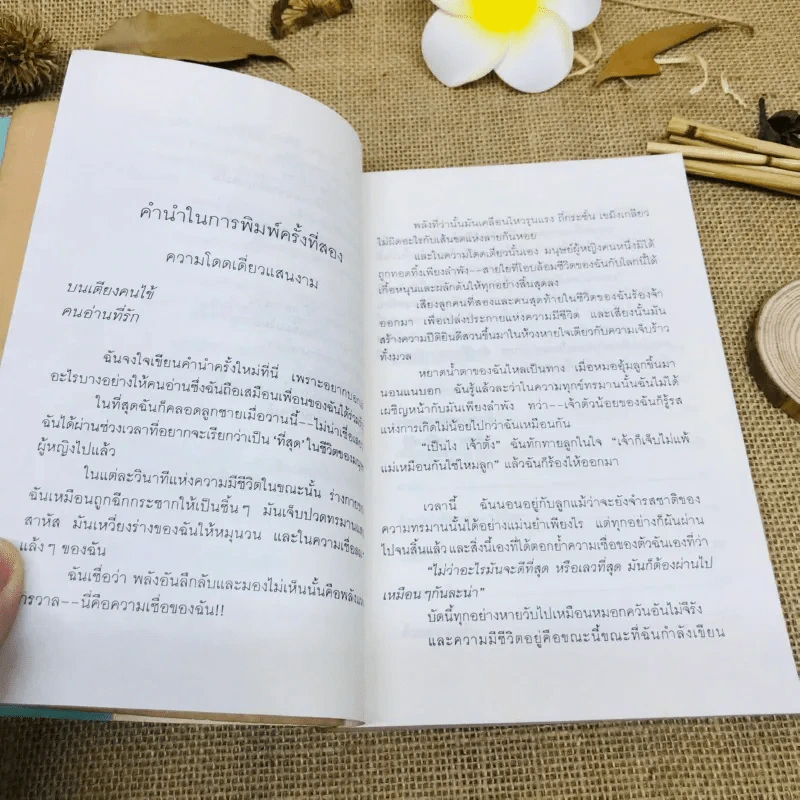 คำนำในการพิมพ์ครั้งที่สอง
ความโดดเดี่ยวแสนงาม
บนเตียงคนไข้
คนอ่านที่รัก
ฉันจงใจเขียนคำนำครั้งใหม่ที่นี่ เพราะอยากบอก
อะไรบางอย่างให้คนอ่านซึ่งฉันถือเสมือนเพื่อนของฉันได้
ในที่สุดฉันก็คลอดลูกชายเมื่อวานนี้--ไม่น่าเชื่อ
ฉันได้ผ่านช่วงเวลาที่อยากจะเรียกว่าเป็น 'ที่สุด' ในชีวิตของ
ผู้หญิงไปแล้ว
ในแต่ละวินาทีแห่งความมีชีวิตในขณะนั้น ร่างกาย
ฉันเหมือนถูกฉีกกระชากให้เป็นชิ้นๆ มันเจ็บปวดทรมาน
สาหัส มันเหวี่ยงร่างของฉันให้หมุนวน และในความเชื่อ
แล้งๆ ของฉัน
ฉันเชื่อว่า พลังอันลึกลับและมองไม่เห็นนั้นคือพลัง
กรวาล--นี่คือความเชื่อของฉัน!!
พลังที่ว่านั้นมันเคลื่อนไหวรุนแรง ถี่กระชั้น เขม็งเกลียว
ไม่ผิดอะไรกับเส้นขดแห่งลายก้นหอย
และในความโดดเดี่ยวนั้นเอง มนุษย์ผู้หญิงคนหนึ่งมิได้
ถูกทอดทิ้งเพียงลำพัง--สายใยที่โอบล้อมชีวิตของฉันกับโลกนี้ได้
เกื้อหนุนและผลักดันให้ทุกอย่างสิ้นสุดลง
เสียงลูกคนที่สองและคนสุดท้ายในชีวิตของฉันร้องจ้า
ออกมา เพื่อเปล่งประกายแห่งความมีชีวิต และเสียงนั้นมัน
สร้างความปิติยินดีสวนขึ้นมาในห้วงหายใจเดียวกับความเจ็บร้าว
ทั้งมวล
หยาดน้ำตาของฉันไหลเป็นทาง เมื่อหมออุ้มลูกขึ้นมา
นอนแนบอก ฉันรู้แล้วละว่าในความทุกข์ทรมานนั้นฉันไม่ได้
เผชิญหน้ากับมันเพียงลำพัง ทว่า--เจ้าตัวน้อยของฉันก็รู้รส
แห่งการเกิดไม่น้อยไปกว่าฉันเหมือนกัน
"เป็นไง เจ้าตั้ง" ฉันทักทายลูกในใจ "เจ้าก็เจ็บไม่แพ้
แม่เหมือนกันใช่ไหมลูก" แล้วฉันก็ร้องไห้ออกมา
เวลานี้ ฉันนอนอยู่กับลูกแม้ว่าจะยังจำรสชาติของ
ความทรมานนั้นได้อย่างแม่นยำเพียงไร แต่ทุกอย่างก็ผันผ่าน
ไปจนสิ้นแล้ว และสิ่งนี้เองที่ได้ตอกย้ำความเชื่อของตัวฉันเองที่ว่า
"ไม่ว่าอะไรมันจะดีที่สุด หรือเลวที่สุด มันก็ต้องผ่านไป
เหมือนๆกันละน่า"
บัดนี้ทุกอย่างหายวับไปเหมือนหมอกควันอันไม่จีรัง
และความมีชีวิตอยู่คือขณะนี้ขณะที่ฉันกำลังเขียน